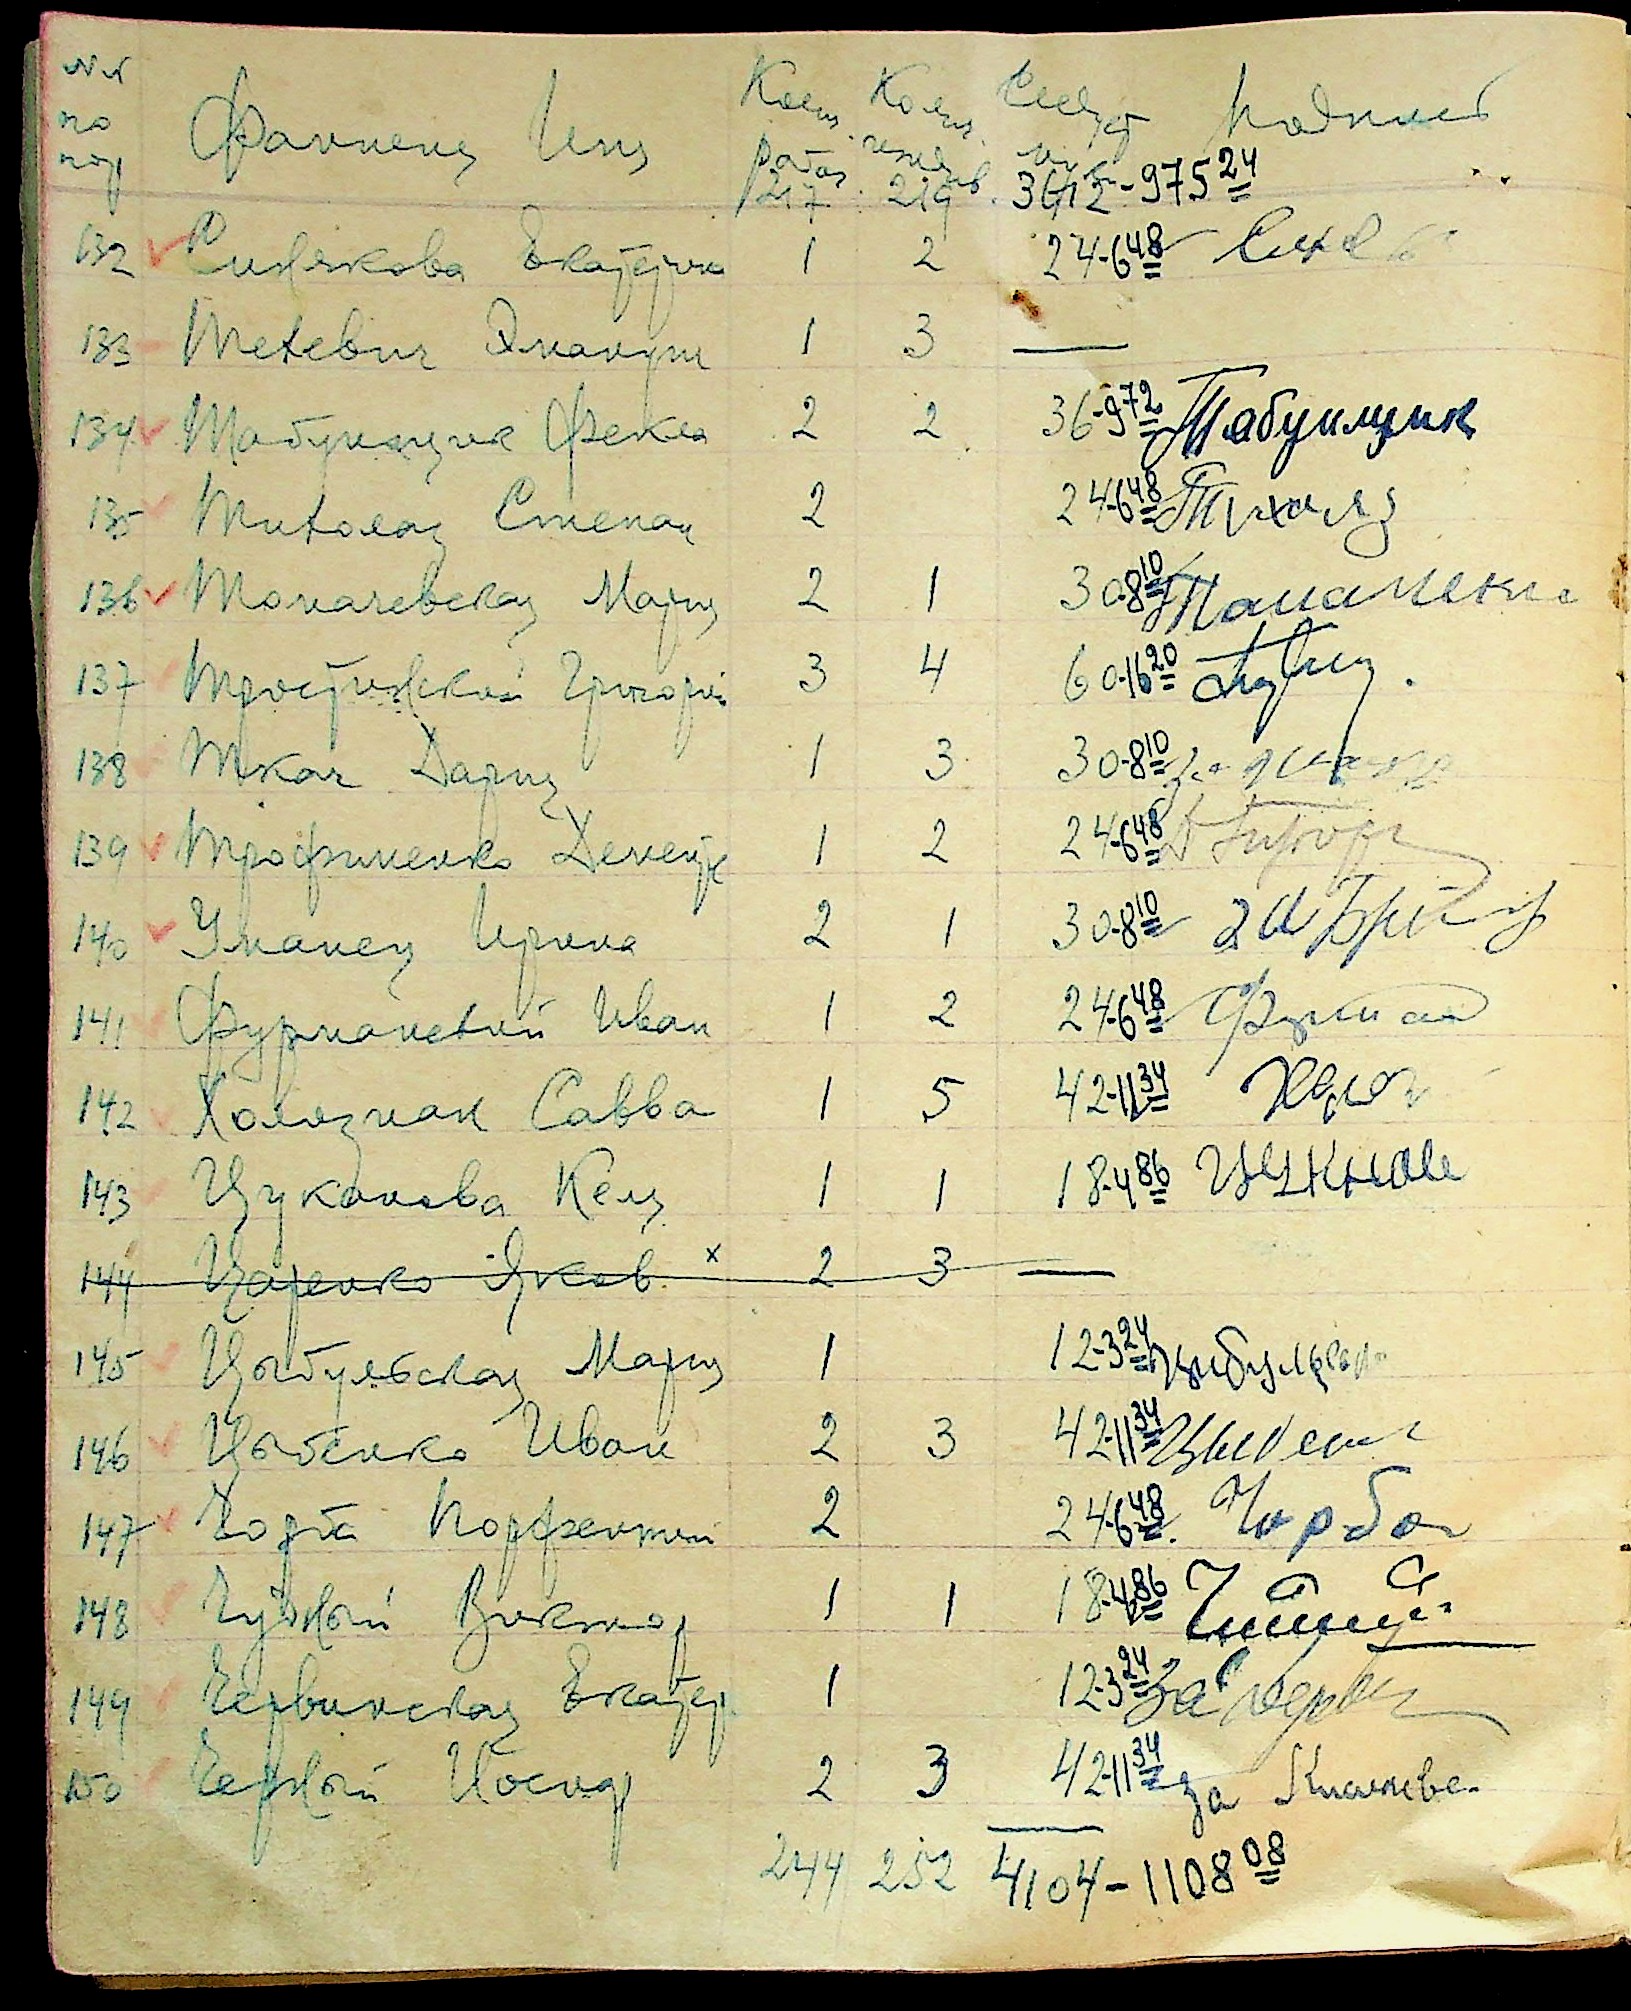 №№ по пор Фамилия Имя Колич. работ Колич. иждив. Следует Подпись
217 219 3612 - 975 24
132 Синякова Екатерина 1 2 24-6 48
133 Тетевич Эмануил 1 3 —
134 Табунщик Фекла 2 2 36-9 72 Табунщик
135 Тихолаз Степан 2 24-6 48 Тихолаз
136 Томачевская Мария 2 1 30-8 10
137 Тростинский Григорий 3 4 60-16 20
138 Ткач Дария 1 3 30-8 10 за
139 Трофименко Дементий 1 2 24-6 48
140 Уманец Ирина 2 1 30-8 10
141 Фурманский Иван 1 2 24-6 48
142 Холязнак Савва 1 5 42-11 34
143 Цуканова Келя 1 1 18-4 86
144 Царенко Яков x 2 3 —
145 Цыбульская Мария 1 12-3 24
146 Цыбенко Иван 2 3 42-11 34
147 Чорба Порфентий 2 24-6 48 Чорба
148 Чудный Виктор 1 1 18-4 86
149 Червинская Екатер 1 12-3 24 За
150 Черный Иосиф 2 3 42-11 34 за
244 252 4104 - 1108 08